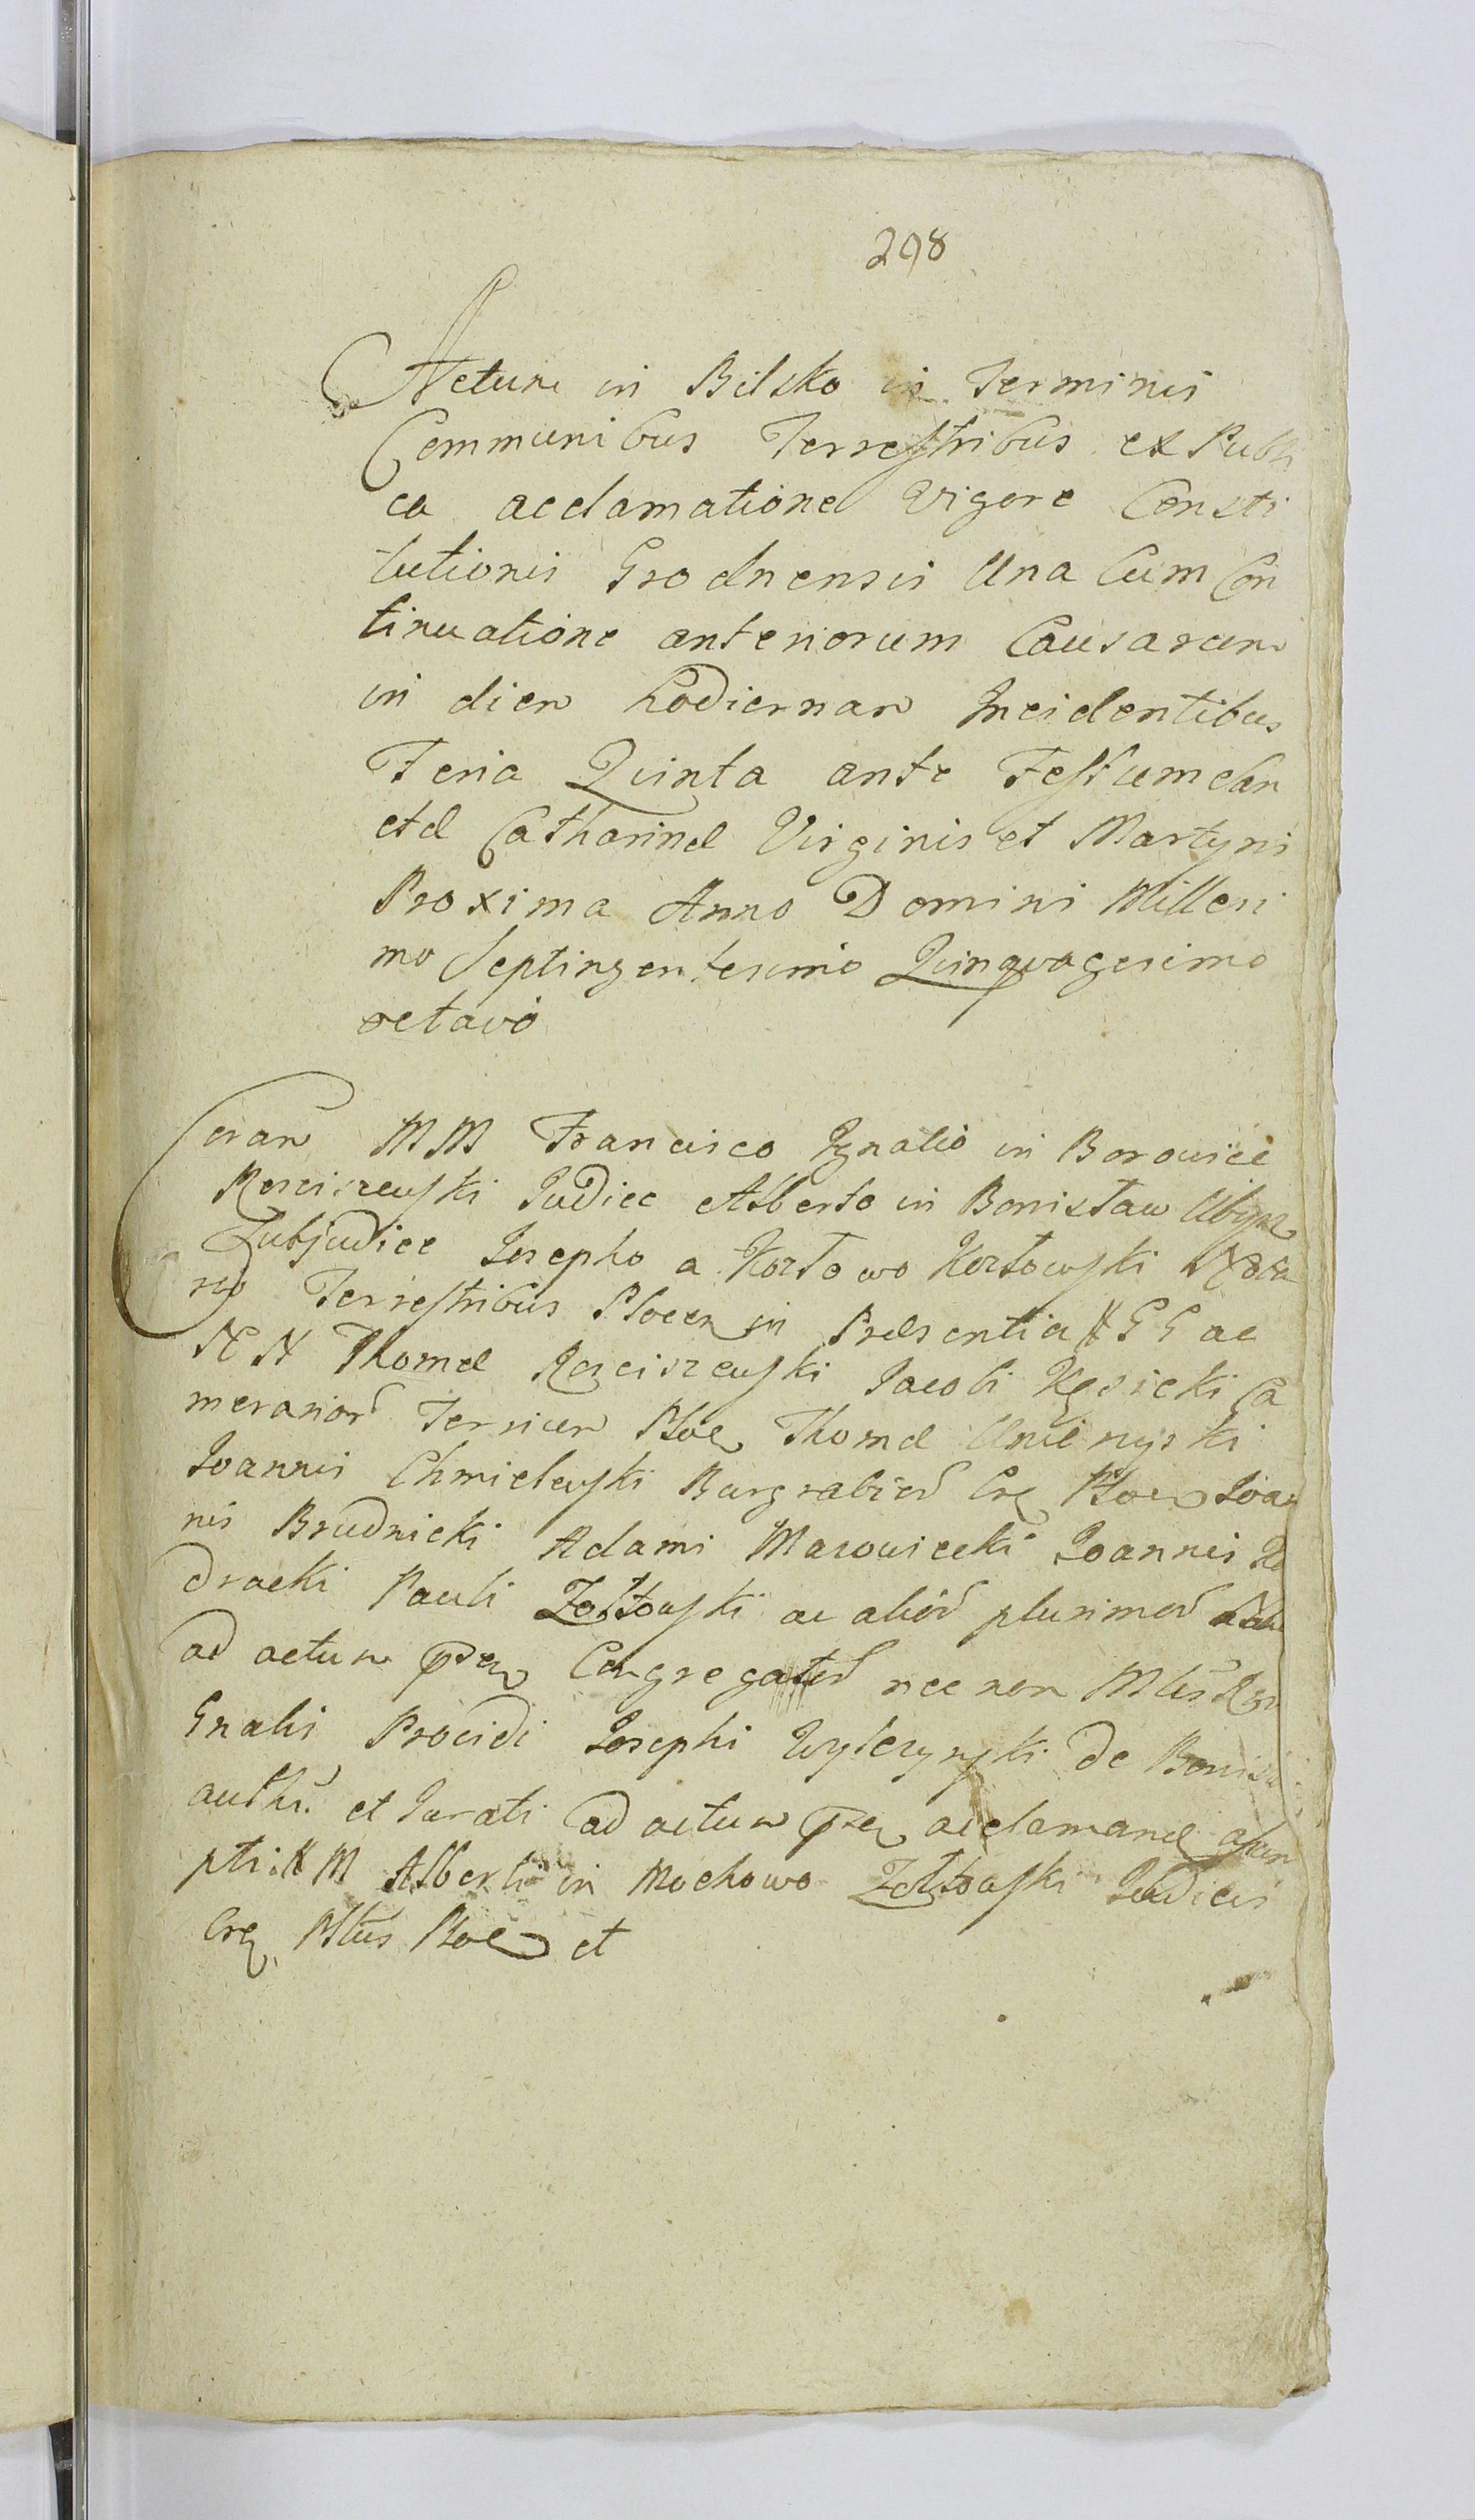 298
Actum in Bilsko in Terminis
Communibus Terrestribus ex Publi
ca acclamatione Vigore Consti
tutionis Grodnensis Una Cum Con
tinuatione anteriorum Causarum
in diem hodiernam Incidentibus
Feria Quinta ante Festum San
ctæ Catharinæ Virginis et Martyris
Proxima Anno Domini Millesi
mo Septingentesimo Quinquagesimo
octavo
Coram MM Francisco Ignatio in Borowice
Rosciszewski Judice Alberto in Bonisław Ubysz
Subjudice Josepho a Kozłowo Kozłowski Nota
rio Terrestribus Plocen in Præsentia GG ac
NN Thomæ Rosciszewski Jacobi Kęsicki Ca
merarior Terrium Ploc Thomæ Unieryski
Joannis Chmielewski Burgrabior Cre Plocen Joan
nis Brudnicki Adami Mazowiecki Joannis
dracki Pauli Zołtowski ac alior plurimor
ad actum præn Congregator nec non Mtis
Gnalis Procidi Josephi Wylezynski de
authi et Jurati ad actum præn acclamand
pti M Alberti in Mochowo Zołtowski Judicis
Cre Pltus Ploc et